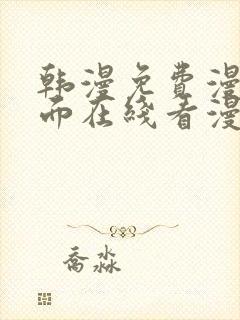 韩漫免费漫
而在线看漫
乔淼